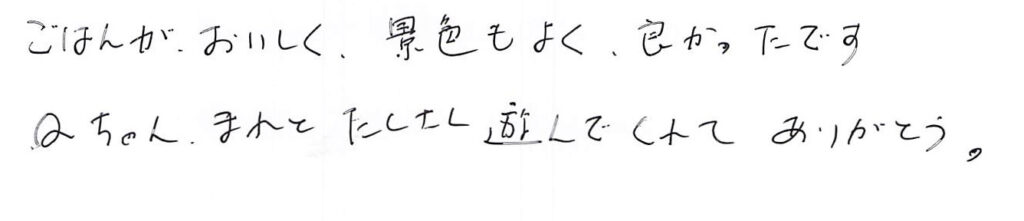 ごはんが、おいしく、景色もよく、良かったです
Qちゃん、まれと たしたし遊んでくれて ありがとう。